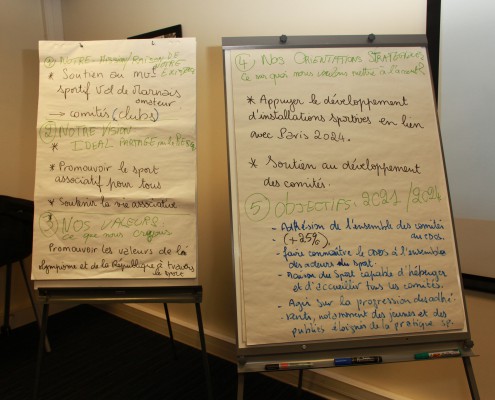 ① NOTRE MISSION/RAISON DE
NOTRE
EXISTENCE
* Soutien au mvt
sportif Val de Marnais
amateur
→ comités (clubs)
② NOTRE VISION
* IDEAL PARTAGÉ
* Promouvoir le sport
associatif pour tous
* Soutenir la vie associative
③ NOS VALEURS
Ce que nous croyons
Promouvoir les valeurs de l'
olympisme et de la République à travers
le sport
④ NOS ORIENTATIONS STRATÉGIQUES
Ce sur quoi nous voulons mettre l'accent?
* Appuyer le développement
d'installations sportives en lien
avec Paris 2024.
* Soutien au développement
des comités.
⑤ OBJECTIFS. 2021/2024
- Adhésion de l'ensemble des comités
au CDOS.
- (+25%)
- faire connaître le CDOS à l'ensemble
des acteurs du sport.
- Maison du Sport capable d'héberger
et d'accueillir tous les comités.
- Agir sur la progression des adhé-
rents, notamment des jeunes et des
publics éloignés de la pratique sp.